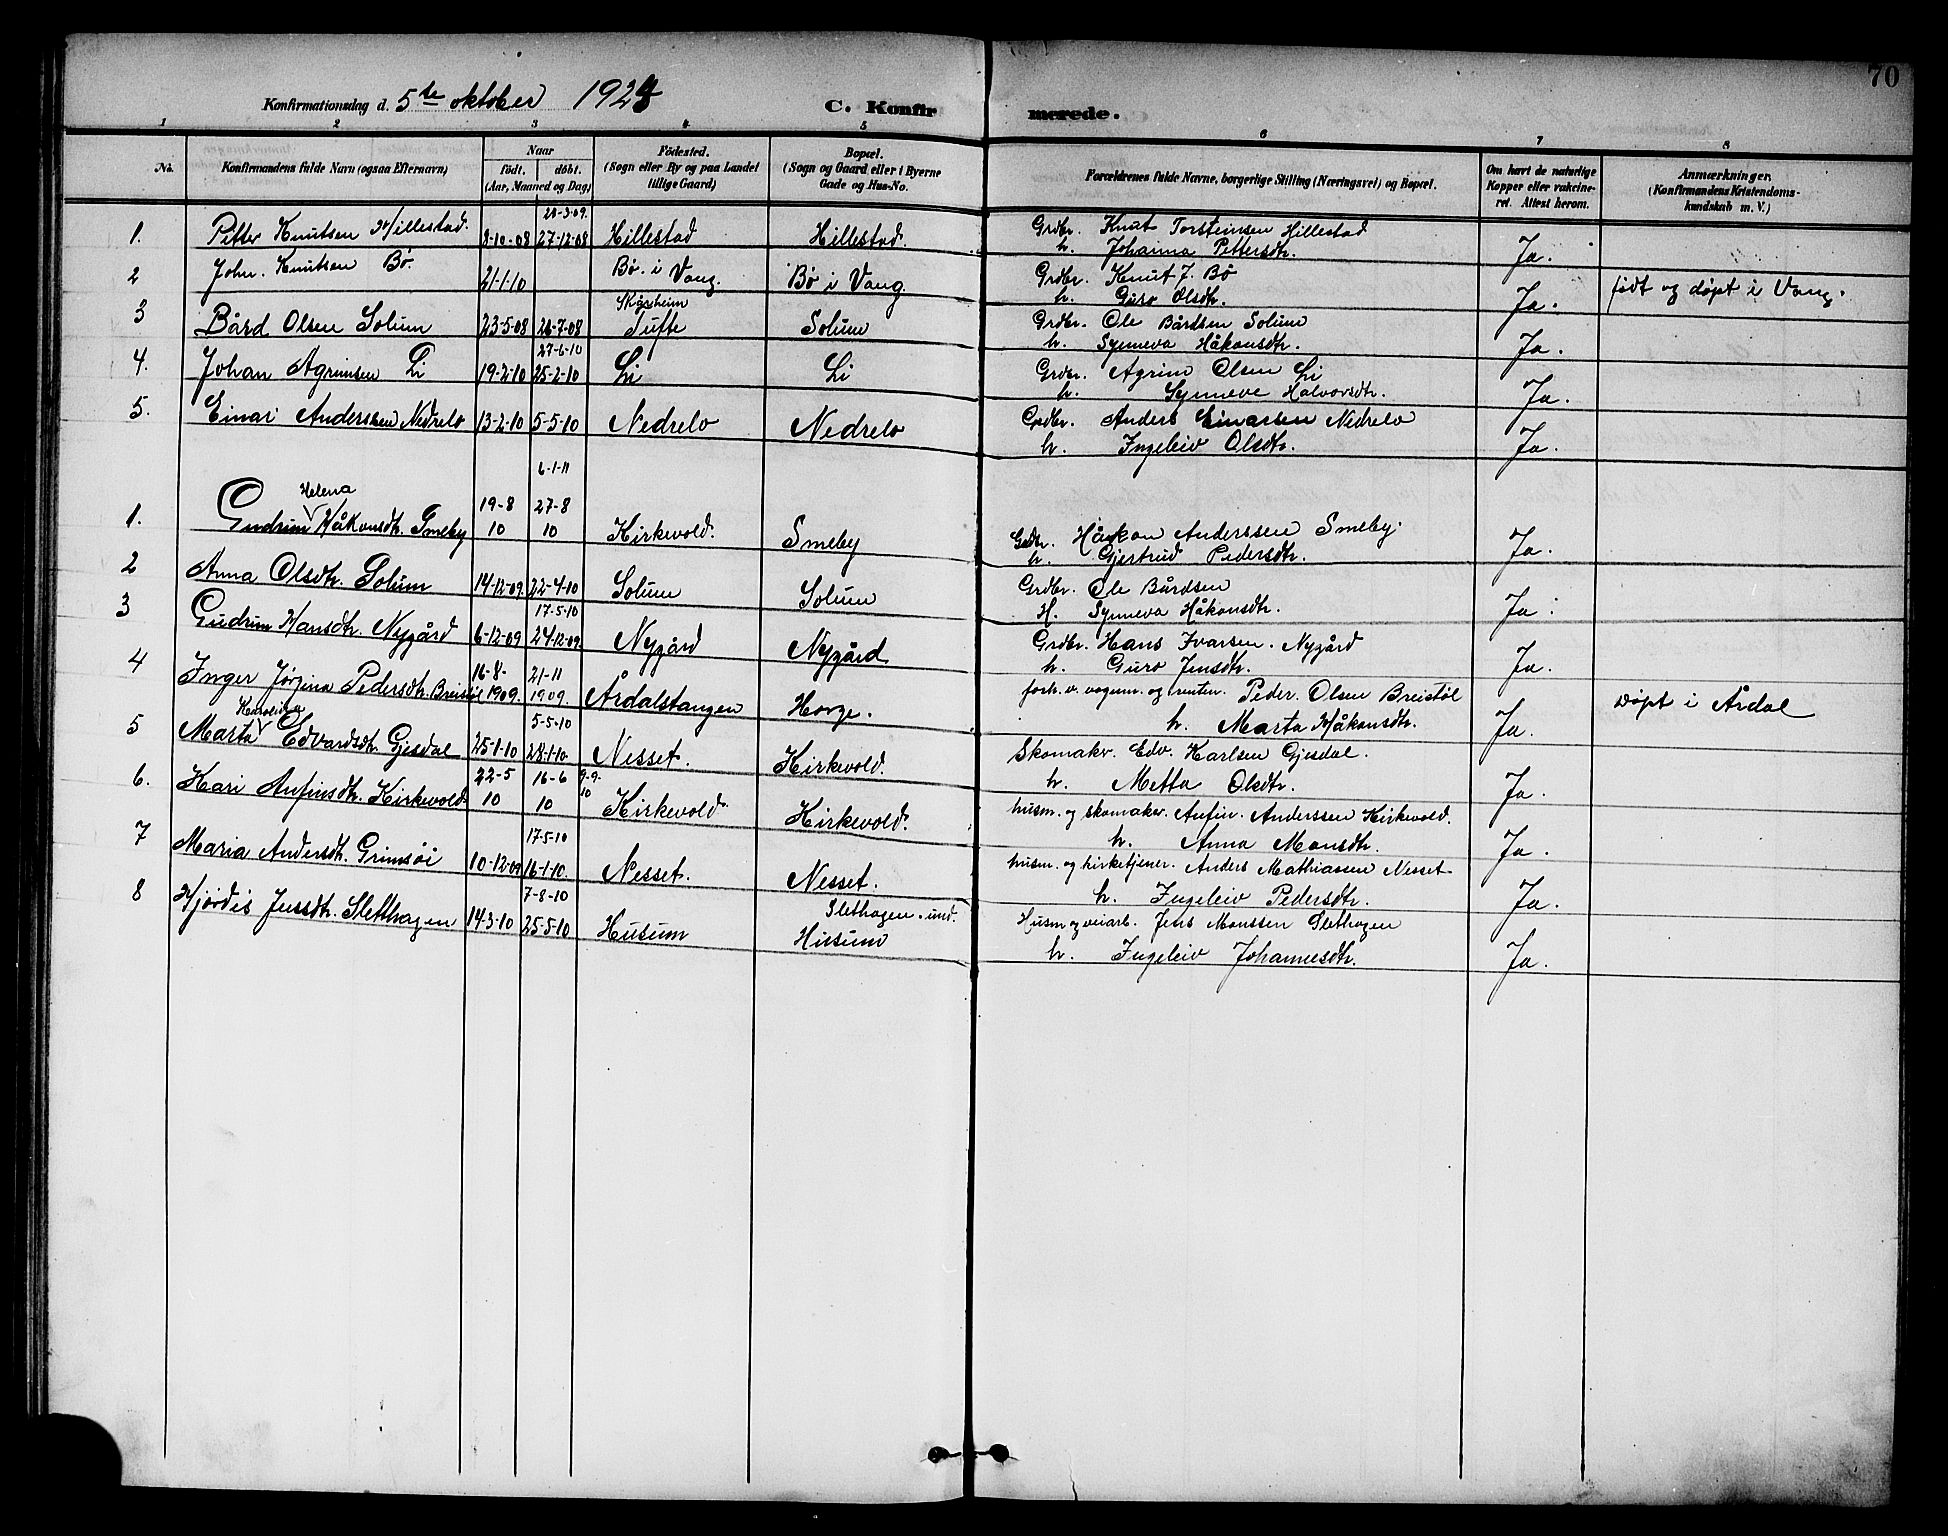 70
Konfirmationsdag d. 5te oktober 1924 C. Konfirmerede.
1 2 3 4 5 6 7 8
No. Konfirmandens fulde Navn (ogsaa Efternavn) Naar født. døbt. (Aar, Maaned og Dag) Fødested. (Sogn eller By og paa Landet tillige Gaard) Bopæl. (Sogn og Gaard eller i Byerne Gade og Hus-No. Forældrenes fulde Navne, borgerlige Stilling (Næringsvei) og Bopæl. Om havt de naturlige Kopper eller vakcineret. Attest herom. Anmærkninger. (Konfirmandens Kristendomskundskab m. V.)
28-3-09.
1. Petter Knutsen Hillestad. 8-10-08 27-12-08 Hillestad Hillestad. Grdbr. Knut Torsteinsen Hillestad
h. Johanna Pettersdtr. Ja.
2 John. Knutsen Bø. 21-1-10 Bø. i Vang. Bø i Vang. Grdbr. Knut J. Bø
h. Guro Olsdtr. Ja. født og døpt i Vang.
3 Bård Olsen Solum 23-5-08 26-7-08 Skårheim Tufte Solum Grdbr. Ole Bårdsen Solum
h. Synneva Håkonsdtr. Ja.
27-6-10
4. Johan Agrimsen Li 19-2-10 25-2-10 Li Li Grdbr. Agrim Olsen Li
h. Synneve Halvorsdtr. Ja.
5. Einar Anderssen Nedrelo 13-2-10 5-5-10 Nedrelo Nedrelo Grdbr. Anders Einarsen Nedrelo
h. Ingeleiv Olsdtr. Ja.
6-1-11
Helena
1. Gudrun Håkonsdtr. Smeby 19-8 10 27-8 10 Kirkevold. Smeby Grdbr. Håkon Anderssen Smeby.
h. Gjertrud Pedersdtr. Ja.
2 Anna Olsdtr. Solum 14-12-09. 22-4-10 Solum Solum Grdbr. Ole Bårdsen
H. Synneva Håkonsdtr. Ja.
17-5-10
3 Gudrun Hansdtr. Nygård 6-12-09 24-12-09. Nygård Nygård Grdbr. Hans Ivarsen. Nygård
h. Guro Jensdtr. Ja.
4 Inger Jørgina Pedersdtr. Breistøl 16-8-1909. 21-11 1909. Årdalstangen Horge. forh. v. vognm. og renten. Peder. Olsen Breistøl
h. Marta Håkonsdtr. Ja. Døpt i Årdal
Karolina 5-5-10
5 Marta Edvardsdtr. Gjesdal 25-1-10 28-1-10 Nesset. Kirkevold. Skomaker. Edv. Karlsen Gjesdal.
h. Metta Olsdtr. Ja.
6. Kari Anfinsdtr. Kirkevold 22-5 10 16-6 10 9-9-10 Kirkevold Kirkevold. husm. og skomaker. Anfin. Anderssen Kirkevold.
h. Anna Monsdtr. Ja.
17-5-10
7 Maria Andersdtr. Grimsøi 10-12-09 16-1-10. Nesset. Nesset. husm. og kirketjener. Anders Mathiassen Nesset
h. Ingeleiv Pedersdtr. Ja.
7-8-10
8 Hjørdis Jensdtr. Sletthagen 14-3-10 25-5-10 Husum Slethagen. und. Husum Husm og veiarb. Jens Monssen Slethagen
h. Ingeleiv Johannesdtr. Ja.